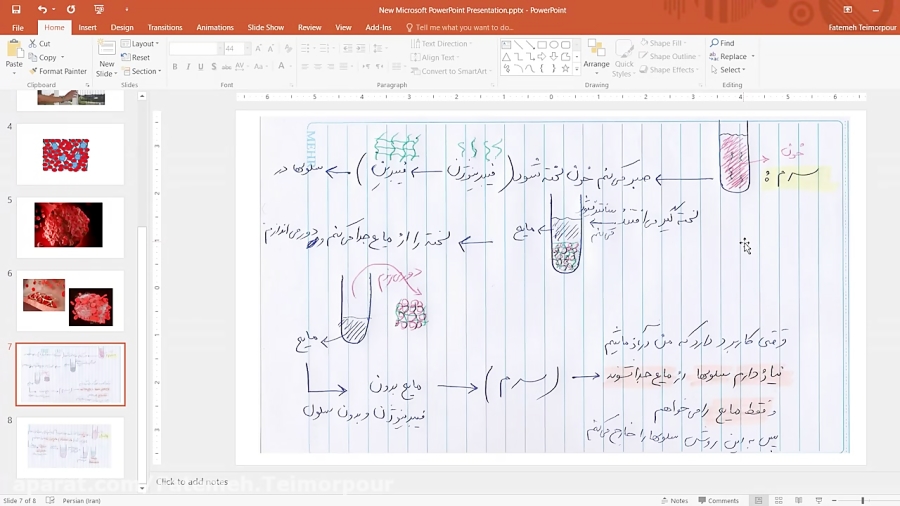 New Microsoft PowerPoint Presentation.pptx - PowerPoint
File Home Insert Design Transitions Animations Slide Show Review View Add-Ins Tell me what you want to do... Fatemeh Teimorpour
Cut
Copy
Format Painter
Paste
Clipboard
New Slide
Layout
Reset
Section
Slides
44
Font
Text Direction
Align Text
Convert to SmartArt
Paragraph
Arrange
Quick Styles
Shape Fill
Shape Outline
Shape Effects
Drawing
Find
Replace
Select
Editing
4
5
6
7
8
خون
سرم :
صبر می‌کنم خون لخته شود (فیبرینوژن فیبرین) سلولها در
لخته گیر می افتند
سانتریفیوژ می‌کنم
مایع
لخته را از مایع جدا می‌کنم و دور می‌اندازم
مایع
مایع بدون
فیبرینوژن و بدون سلول
(سرم)
وقتی کاربرد دارد که من در آزمایشم
نیاز دارم سلولها از مایع جدا شوند
و فقط مایع را می‌خواهم
پس به این روش سلولها را خارج می‌کنم
Click to add notes
aparat.com/Fatemeh.Teimorpour
Slide 7 of 8 Persian (Iran) Notes Comments